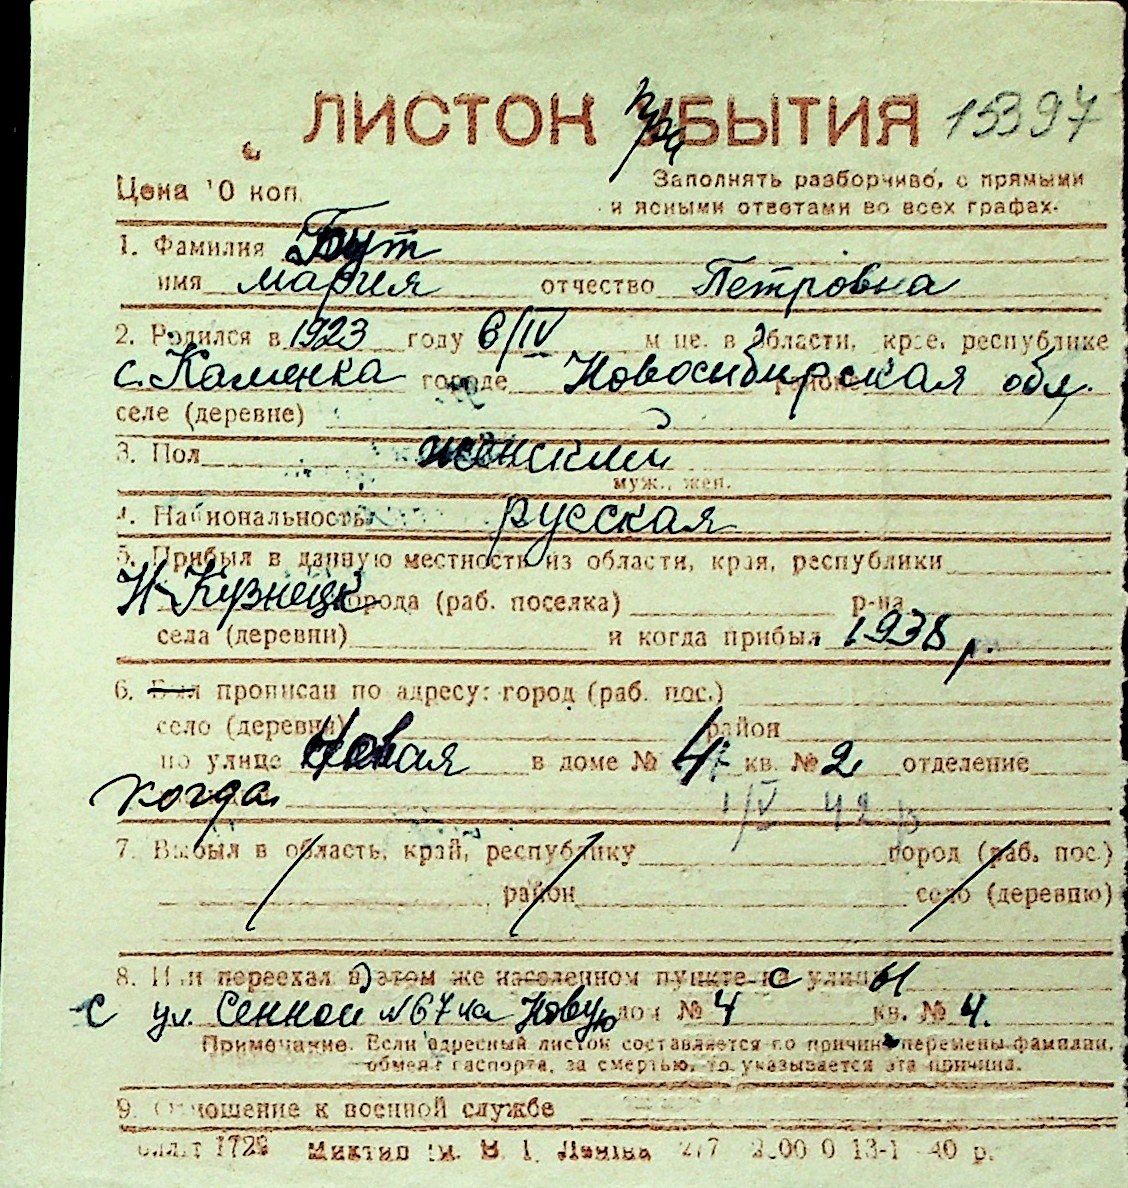 ЛИСТОН УБЫТИЯ 15397
Цена 10 коп.
Заполнять разборчиво, с прямыми
и ясными ответами во всех графах.
1. Фамилия Гаут
имя Мария отчество Петровна
2. Родился в 1923 году 6/IV м-це. в области, крае, республике
с. Каменка городе Новосибирская обл. районе
селе (деревне)
3. Пол женский
муж., жен.
4. Национальность русская
5. Прибыл в данную местность из области, края, республики
Н-Кузнецк города (раб. поселка) р-на
села (деревни) и когда прибыл 1938 г.
6. Был прописан по адресу: город (раб. пос.)
село (деревня) район
по улице Новая в доме № 47 кв. № 2 отделение
когда 1/V 42 г
7. Выбыл в область, край, республику город (раб. пос.)
район село (деревню)
8. Или переехал в этом же населенном пункте на с улицы
с ул. Сенной №67 на Новую дом № 4 кв. № 4.
Примечание. Если адресный листок составляется по причине перемены фамилии,
обмена паспорта, за смертью, то указывается эта причина.
9. Отношение к военной службе
1728 им. В. И. Ленина 13-1 40 г.